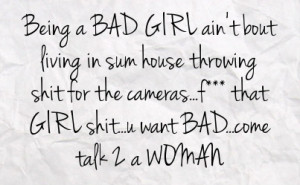 Being a BAD GIRL ain't bout
living in sum house throwing
shit for the cameras...f*** that
GIRL shit...u want BAD...come
talk 2 a WOMAN